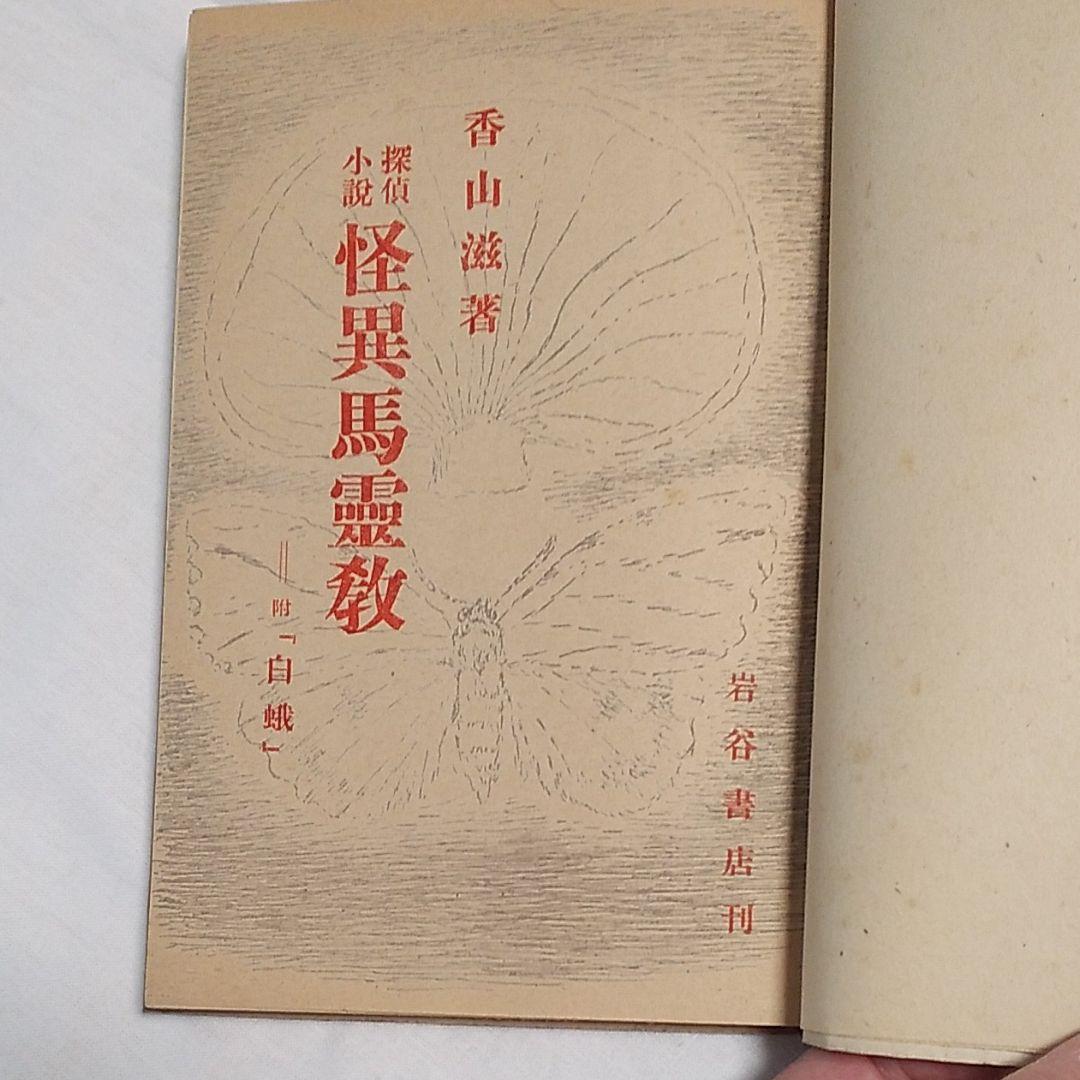 香山滋著
探偵
小說
怪異馬靈教
＝附「白蛾」
岩谷書店刊